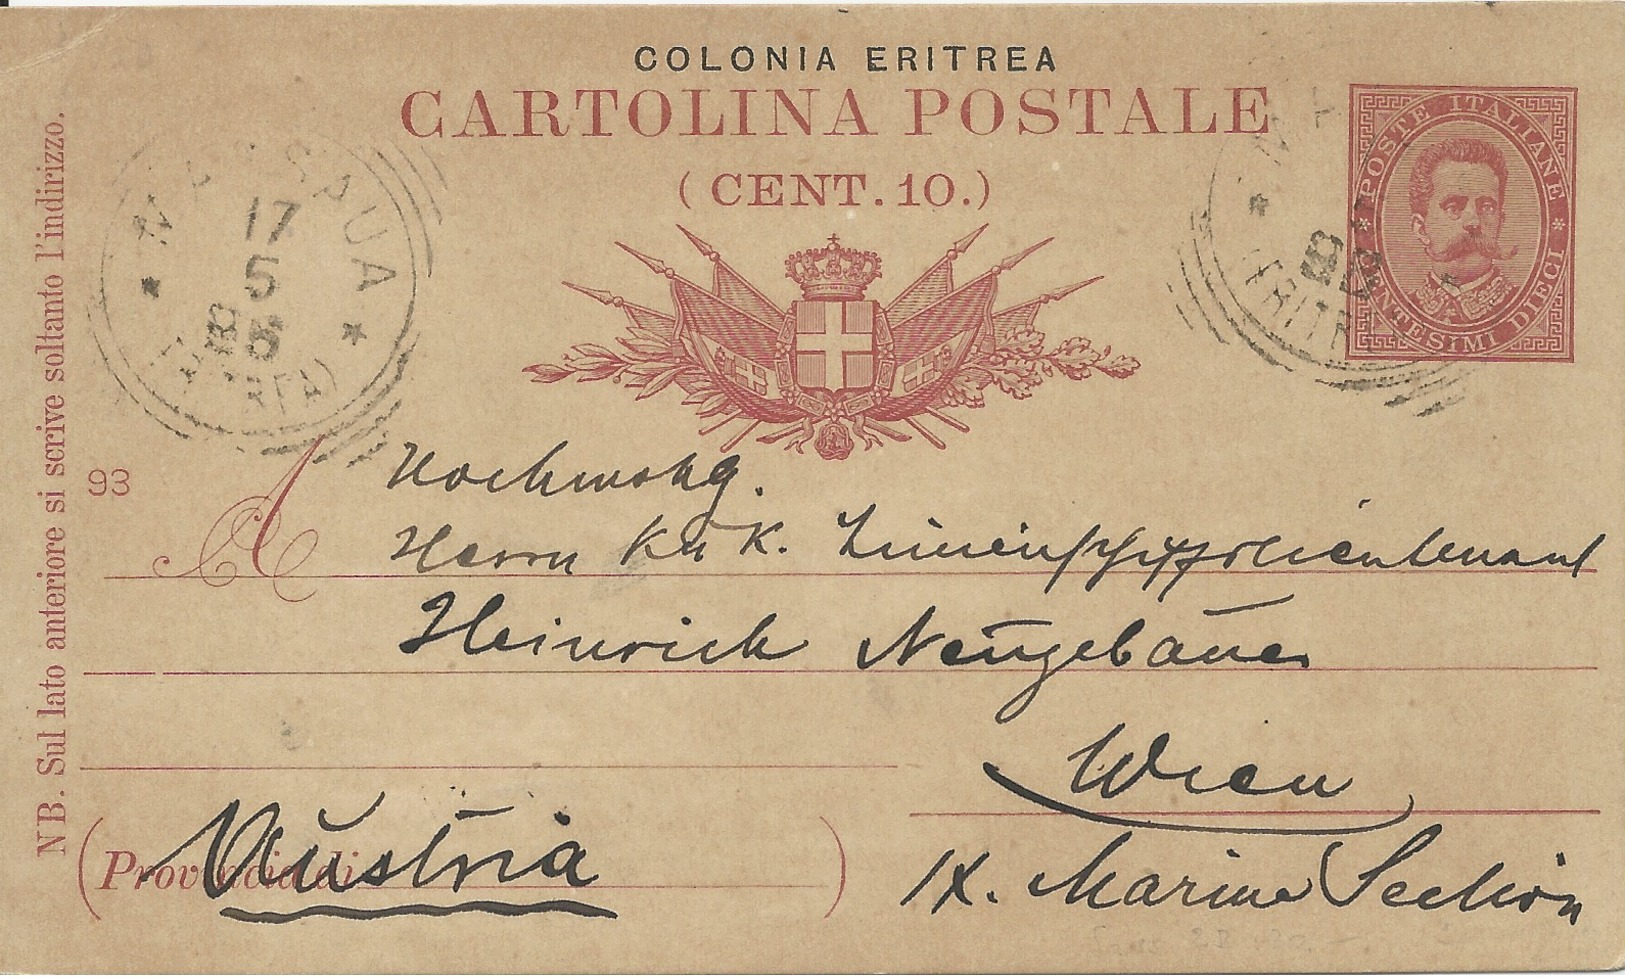 COLONIA ERITREA
CARTOLINA POSTALE
(CENT. 10.)
POSTE ITALIANE
CENTESIMI DIECI
MASSAUA
17
5
95
(ERITREA)
NB. Sul lato anteriore si scrive soltanto l'indirizzo.
93
A
Hochwohlg.
Herrn K u K. Linienschiffslieutenant
Heinrich Neugebauer
Wien
(Provincia di)
Austria
IX. Marine Section